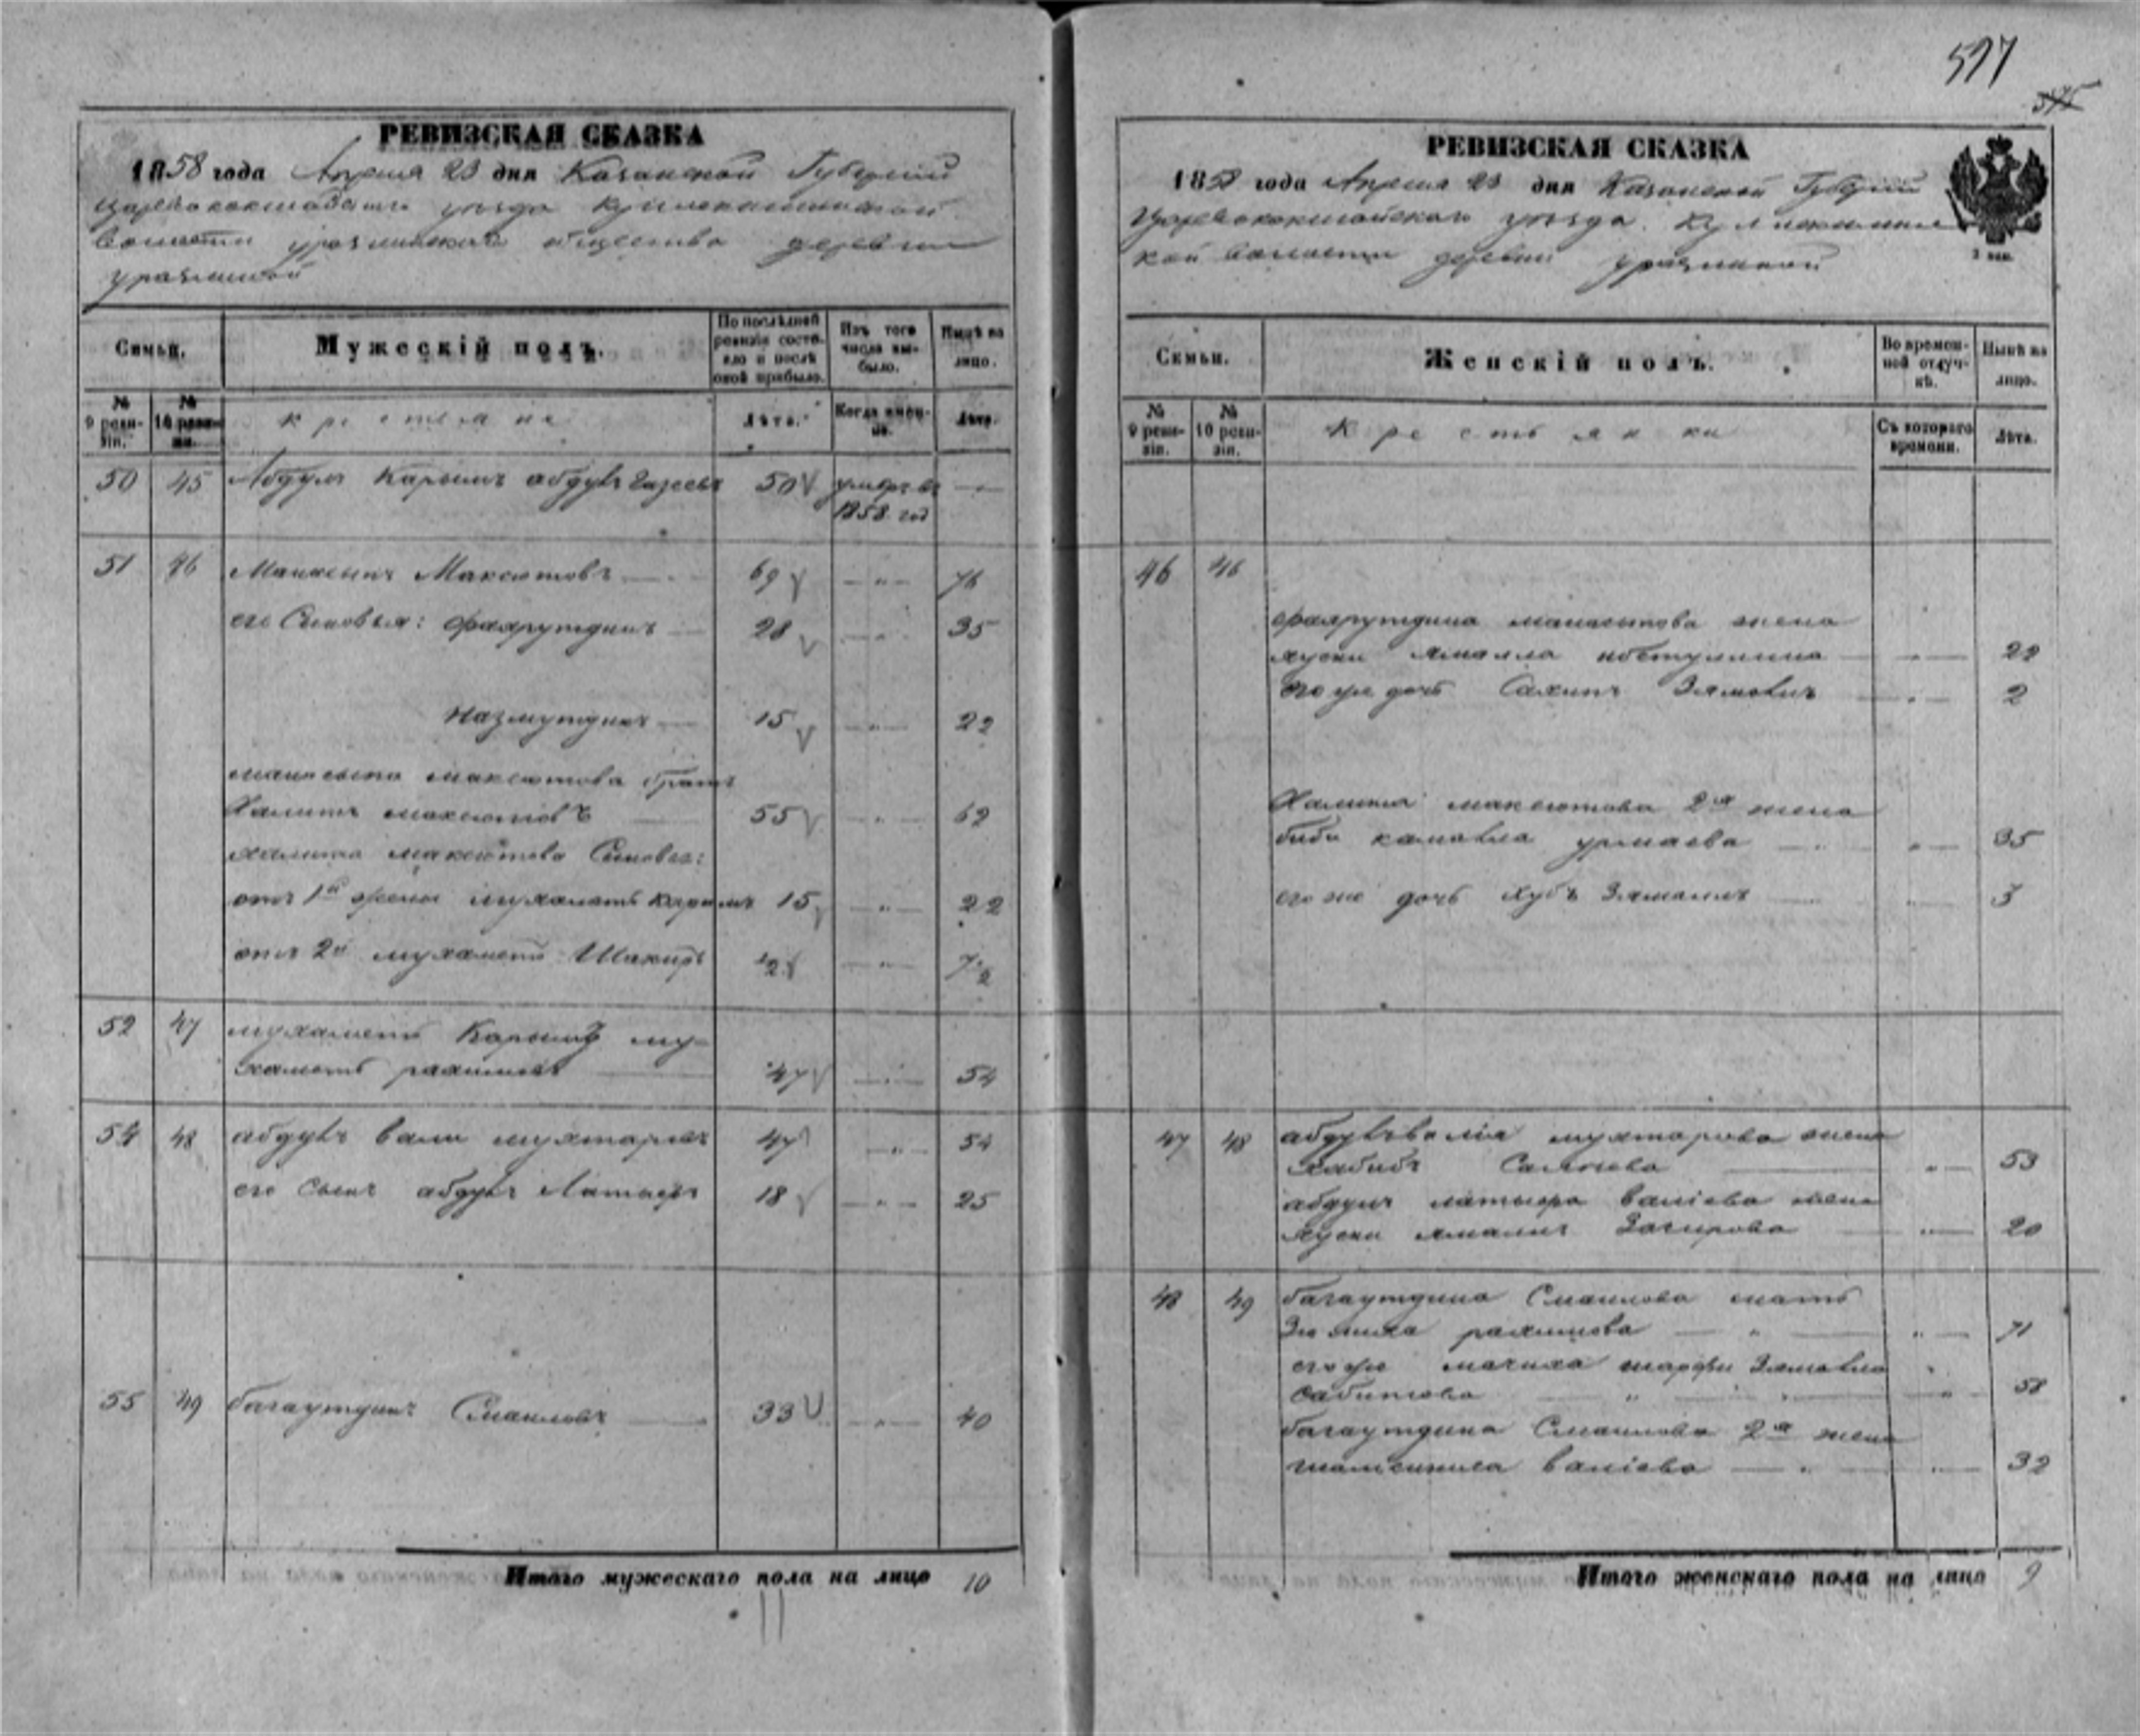 597
575
РЕВИЗСКАЯ СКАЗКА
1858 года Апреля 23 дня Казанской Губернии
Царевококшайскаго уезда
волости общества деревни
Мужескій полъ.
Семьи.
По последней ревизіи состояло и после оной прибыло.
Изъ того числа выбыло.
Ныне на лицо.
№ 9 ревизіи.
№ 10 ревизіи.
крестьяне
Лета.
Когда именно.
Лета.
50 45 Абдулъ Карымъ абдулъ Газеевъ 50 умеръ въ 1858 год —
51 46 Максютовъ 69 — " — 76
его Сыновья: Фахрутдинъ 28 — " — 35
Назмутдинъ 15 — " — 22
Максютова братъ
Халитъ Максютовъ 55 — " — 62
Халита Максютова Сыновья:
отъ 1й жены мухаметъ Карымъ 15 — " — 22
отъ 2й мухаметъ Шакиръ ½ — " — 7½
52 47 мухаметъ Карымъ му-
хаметъ рахимовъ 47 — " — 54
54 48 абдулъ вали мухтаровъ 47 — " — 54
его сынъ абдулъ Латыфъ 18 — " — 25
55 49 багаутдинъ Смаиловъ 33 — " — 40
Итого мужескаго пола на лицо 10
РЕВИЗСКАЯ СКАЗКА
1858 года Апреля 23 дня Казанской Губерніи
Царевококшайскаго уезда
кой волости деревни
Семьи.
Женскій полъ.
Во временной отлучке.
Ныне на лицо.
№ 9 ревизіи.
№ 10 ревизіи.
Крестьянки
Съ котораго времени.
Лета.
46 46
Фахрутдина жена
22
его же дочь — " — 2
Халита максютова 2я жена
биби камалла урмаева — " — 35
его же дочь Хубъ Зямалъ — " — 3
47 48 абдулъ валія мухтарова жена
Хабибъ — " — 53
абдулъ латыфа валіева жена
Хусни ямалъ Загирова — " — 20
48 49 багаутдина Смаилова мать
рахимова — " — 71
его же мачиха
Сабитова — " — 58
багаутдина Смаилова 2я жена
валіева — " — 32
Итого женскаго пола на лицо 9